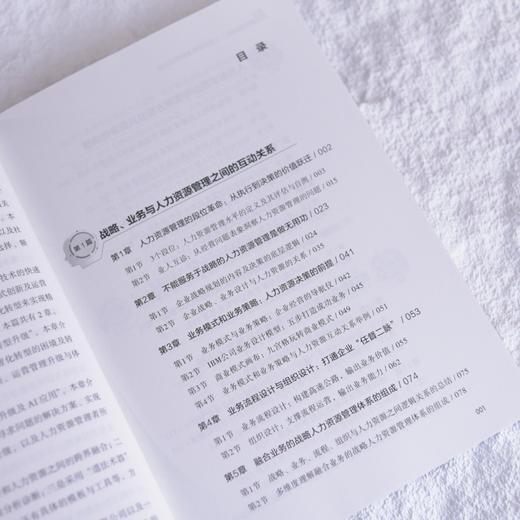 目 录
第1篇
战略、业务与人力资源管理之间的互动关系
第1章 人力资源管理的段位革命：从执行到决策的价值跃迁 / 002
第1节 3个段位：人力资源管理水平的定义及其评价与自测 / 003
第2节 业人互诊：从经营问题表象洞察人力资源管理的问题 / 015
第2章 不能服务于战略的人力资源管理是做无用功 / 023
第1节 企业战略规划的内容及决策的底层逻辑 / 024
第2节 企业战略、业务设计与人力资源的关系 / 035
第3章 业务模式和业务策略：人力资源决策的前提 / 041
第1节 业务模式与业务策略：企业经营的导航仪 / 042
第2节 IBM公司业务设计模型：五步打造成功业务 / 043
第3节 商业模式画布：九宫格玩转商业模式 / 049
第4节 业务模式和业务策略与人力资源互动关系举例 / 051
第4章 业务流程设计与组织设计：打通企业“任督二脉” / 053
第1节 业务流程设计：构建高速公路，输出业务价值 / 055
第2节 组织设计：支撑流程运营，输出业务能力 / 062
第5章 融合业务的战略人力资源管理体系的组成 / 074
第1节 战略、业务、流程、组织与人力资源之间逻辑关系的总结 / 075
第2节 多维度理解融合业务的战略人力资源管理体系的组成 / 078
001